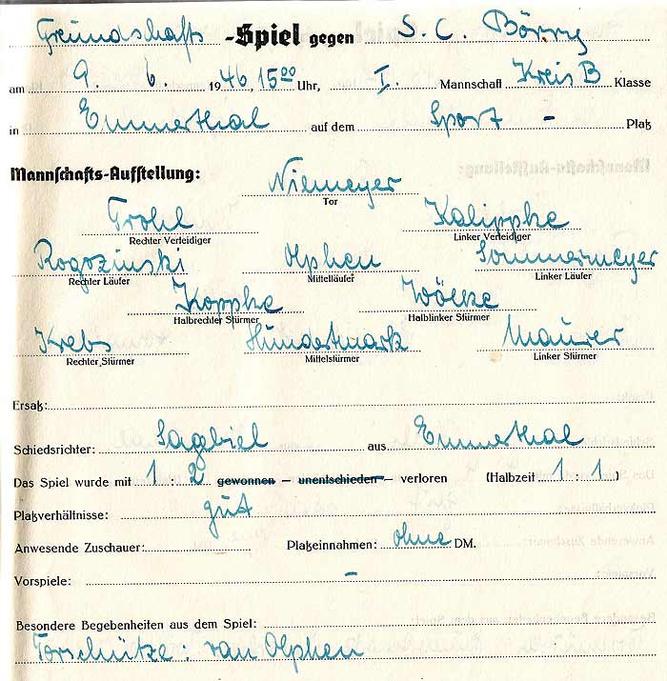 Freundschafts -Spiel gegen S. C. Börry
am 9. 6. 1946, 15⁰⁰ Uhr, I. Mannschaft Kreis B Klasse
in Emmerthal auf dem Sport - Platz
Mannschafts-Aufstellung:
Niemeyer
Tor
Trohl Kalippke
Rechter Verteidiger Linker Verteidiger
Rogozinski Olphen Sommermeyer
Rechter Läufer Mittelläufer Linker Läufer
Koppke Wölke
Halbrechter Stürmer Halblinker Stürmer
Krebs Hundertmark Maurer
Rechter Stürmer Mittelstürmer Linker Stürmer
Ersatz:
Schiedsrichter: Sagebiel aus Emmerthal
Das Spiel wurde mit 1 : 2 gewonnen – unentschieden – verloren (Halbzeit 1 : 1)
Platzverhältnisse: gut
Anwesende Zuschauer: Platzeinnahmen: ohne DM.
Vorspiele: -
Besondere Begebenheiten aus dem Spiel:
Torschütze: van Olphen